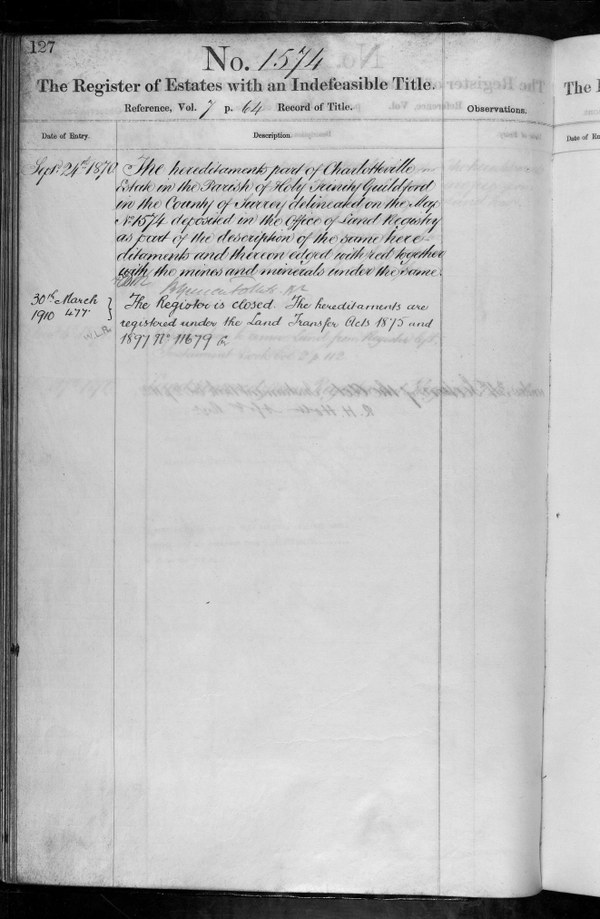 127
No. 1574
The Register of Estates with an Indefeasible Title.
Reference, Vol. 7 p. 64 Record of Title.
Observations.
Date of Entry.
Description.
Septr 24th 1870
The hereditaments part of Charlotteville
Estate in the Parish of Holy Trinity Guildford
in the County of Surrey delineated on the Map
No 1574 deposited in the Office of Land Registry
as part of the description of the same here-
ditaments and thereon edged with red together
with the mines and minerals under the same.
30th March
1910 477
The Register is closed. The hereditaments are
registered under the Land Transfer Acts 1875 and
1897 No 11679
The
Date of En